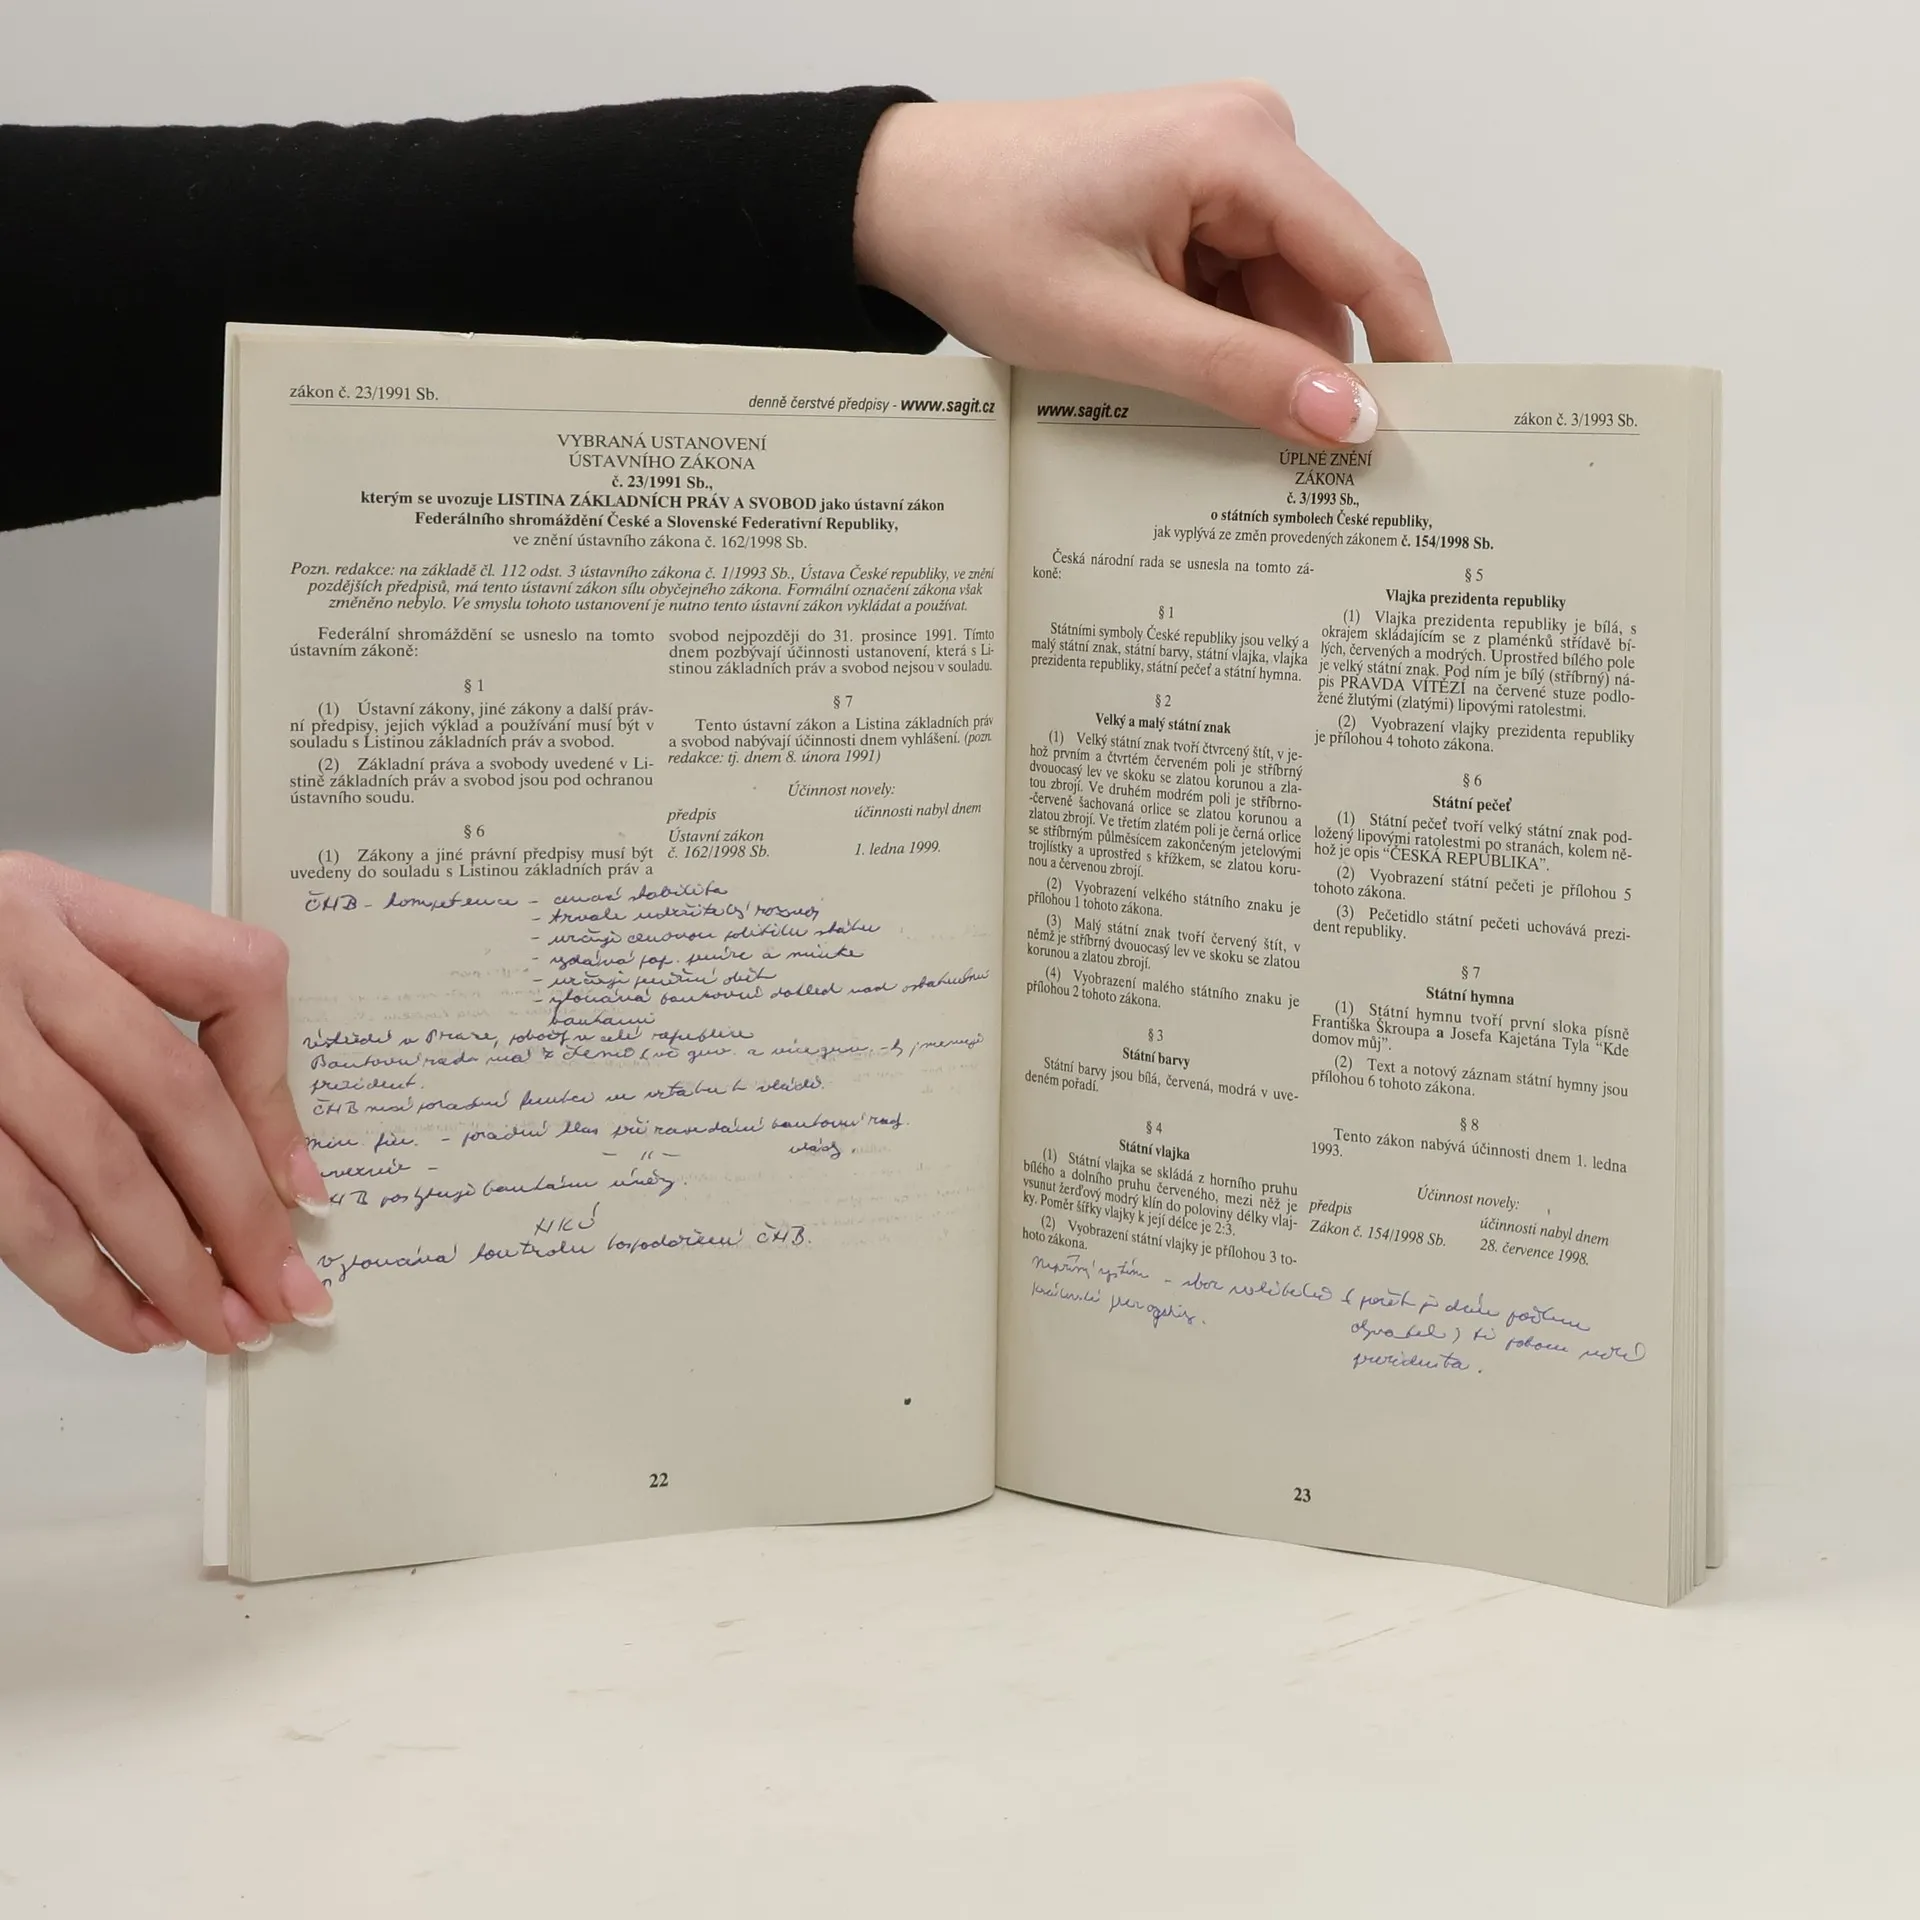 zákon č. 23/1991 Sb.
denně čerstvé předpisy - www.sagit.cz
VYBRANÁ USTANOVENÍ
ÚSTAVNÍHO ZÁKONA
č. 23/1991 Sb.,
kterým se uvozuje LISTINA ZÁKLADNÍCH PRÁV A SVOBOD jako ústavní zákon
Federálního shromáždění České a Slovenské Federativní Republiky,
ve znění ústavního zákona č. 162/1998 Sb.
Pozn. redakce: na základě čl. 112 odst. 3 ústavního zákona č. 1/1993 Sb., Ústava České republiky, ve znění
pozdějších předpisů, má tento ústavní zákon sílu obyčejného zákona. Formální označení zákona však
změněno nebylo. Ve smyslu tohoto ustanovení je nutno tento ústavní zákon vykládat a používat.
Federální shromáždění se usneslo na tomto
ústavním zákoně:
§ 1
(1) Ústavní zákony, jiné zákony a další práv-
ní předpisy, jejich výklad a používání musí být v
souladu s Listinou základních práv a svobod.
(2) Základní práva a svobody uvedené v Li-
stině základních práv a svobod jsou pod ochranou
ústavního soudu.
§ 6
(1) Zákony a jiné právní předpisy musí být
uvedeny do souladu s Listinou základních práv a
svobod nejpozději do 31. prosince 1991. Tímto
dnem pozbývají účinnosti ustanovení, která s Li-
stinou základních práv a svobod nejsou v souladu.
§ 7
Tento ústavní zákon a Listina základních práv
a svobod nabývají účinnosti dnem vyhlášení. (pozn.
redakce: tj. dnem 8. února 1991)
Účinnost novely:
předpis účinnosti nabyl dnem
Ústavní zákon
č. 162/1998 Sb. 1. ledna 1999.
ČNB - kompetence - cenová stabilita
- trvale udržitelný rozvoj
- určuje cenovou politiku státu
- vydává pap. peníze a mince
- určuje peněžní oběh
- vykonává bankovní dohled nad ostatními
bankami
ústředí v Praze, pobočky v celé republice
Bankovní rada má 7 členů guv. a viceguv. jmenuje
prezident.
ČNB není poradní funkci ve vztahu k vládě.
Min. fin. - poradní hlas při zasedání bankovní rady.
- " - vlády.
NB poskytuje bankám úvěry.
NKÚ
Vykonává kontrolu hospodaření ČNB.
22
www.sagit.cz
zákon č. 3/1993 Sb.
ÚPLNÉ ZNĚNÍ
ZÁKONA
č. 3/1993 Sb.,
o státních symbolech České republiky,
jak vyplývá ze změn provedených zákonem č. 154/1998 Sb.
Česká národní rada se usnesla na tomto zá-
koně:
§ 1
Státními symboly České republiky jsou velký a
malý státní znak, státní barvy, státní vlajka, vlajka
prezidenta republiky, státní pečeť a státní hymna.
§ 2
Velký a malý státní znak
(1) Velký státní znak tvoří čtvrcený štít, v je-
hož prvním a čtvrtém červeném poli je stříbrný
dvouocasý lev ve skoku se zlatou korunou a zla-
tou zbrojí. Ve druhém modrém poli je stříbrno-
-červeně šachovaná orlice se zlatou korunou a
zlatou zbrojí. Ve třetím zlatém poli je černá orlice
se stříbrným půlměsícem zakončeným jetelovými
trojlístky a uprostřed s křížkem, se zlatou koru-
nou a červenou zbrojí.
(2) Vyobrazení velkého státního znaku je
přílohou 1 tohoto zákona.
(3) Malý státní znak tvoří červený štít, v
němž je stříbrný dvouocasý lev ve skoku se zlatou
korunou a zlatou zbrojí.
(4) Vyobrazení malého státního znaku je
přílohou 2 tohoto zákona.
§ 3
Státní barvy
Státní barvy jsou bílá, červená, modrá v uve-
deném pořadí.
§ 4
Státní vlajka
(1) Státní vlajka se skládá z horního pruhu
bílého a dolního pruhu červeného, mezi něž je
vsunut žerďový modrý klín do poloviny délky vlaj-
ky. Poměr šířky vlajky k její délce je 2:3.
(2) Vyobrazení státní vlajky je přílohou 3 to-
hoto zákona.
§ 5
Vlajka prezidenta republiky
(1) Vlajka prezidenta republiky je bílá, s
okrajem skládajícím se z plaménků střídavě bí-
lých, červených a modrých. Uprostřed bílého pole
je velký státní znak. Pod ním je bílý (stříbrný) ná-
pis PRAVDA VÍTĚZÍ na červené stuze podlo-
žené žlutými (zlatými) lipovými ratolestmi.
(2) Vyobrazení vlajky prezidenta republiky
je přílohou 4 tohoto zákona.
§ 6
Státní pečeť
(1) Státní pečeť tvoří velký státní znak pod-
ložený lipovými ratolestmi po stranách, kolem ně-
hož je opis “ČESKÁ REPUBLIKA”.
(2) Vyobrazení státní pečeti je přílohou 5
tohoto zákona.
(3) Pečetidlo státní pečeti uchovává prezi-
dent republiky.
§ 7
Státní hymna
(1) Státní hymnu tvoří první sloka písně
Františka Škroupa a Josefa Kajetána Tyla “Kde
domov můj”.
(2) Text a notový záznam státní hymny jsou
přílohou 6 tohoto zákona.
§ 8
Tento zákon nabývá účinnosti dnem 1. ledna
1993.
Účinnost novely:
předpis účinnosti nabyl dnem
Zákon č. 154/1998 Sb. 28. července 1998.
Nepřímý systém - sbor volitelů ( počet je dán počtem
obyvatel) ti potom volí
prezidenta.
23